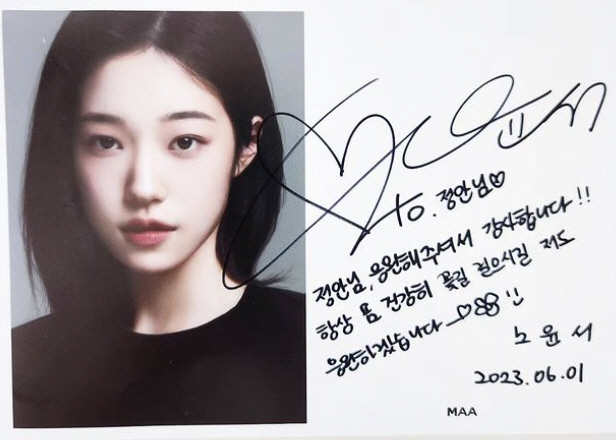 to. 정안님♡
정안님, 응원해주셔서 감사합니다!!
항상 몸 건강히 꽃길 걸으시길 저도
응원하겠습니다
노윤서
2023.06.01
MAA